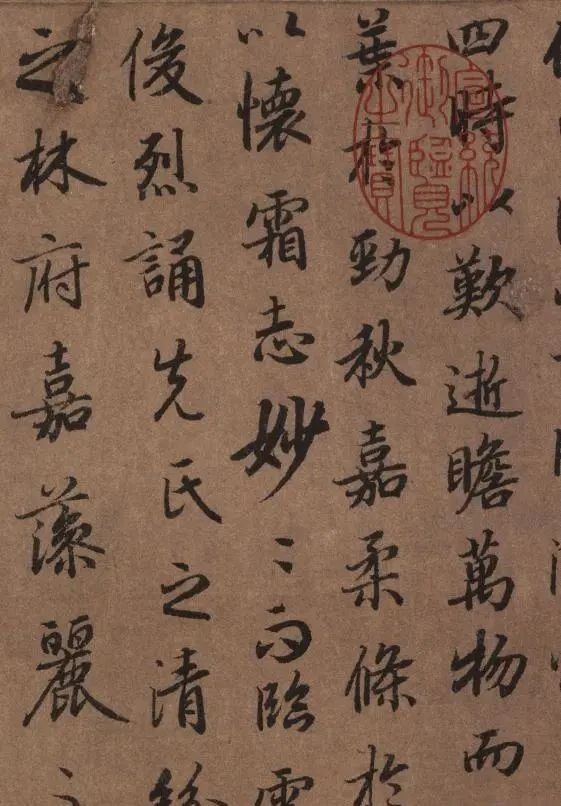 四時以歎逝瞻萬物而
葉於勁秋嘉柔條於
以懷霜志妙〻而臨雲
俊烈誦先氏之清
之林府嘉藻麗之
宣統御覽之寶